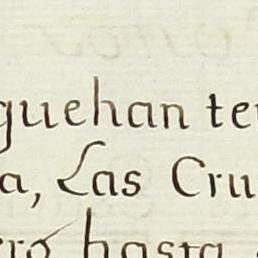 quehan ten
a, Las Cru
ero hasta